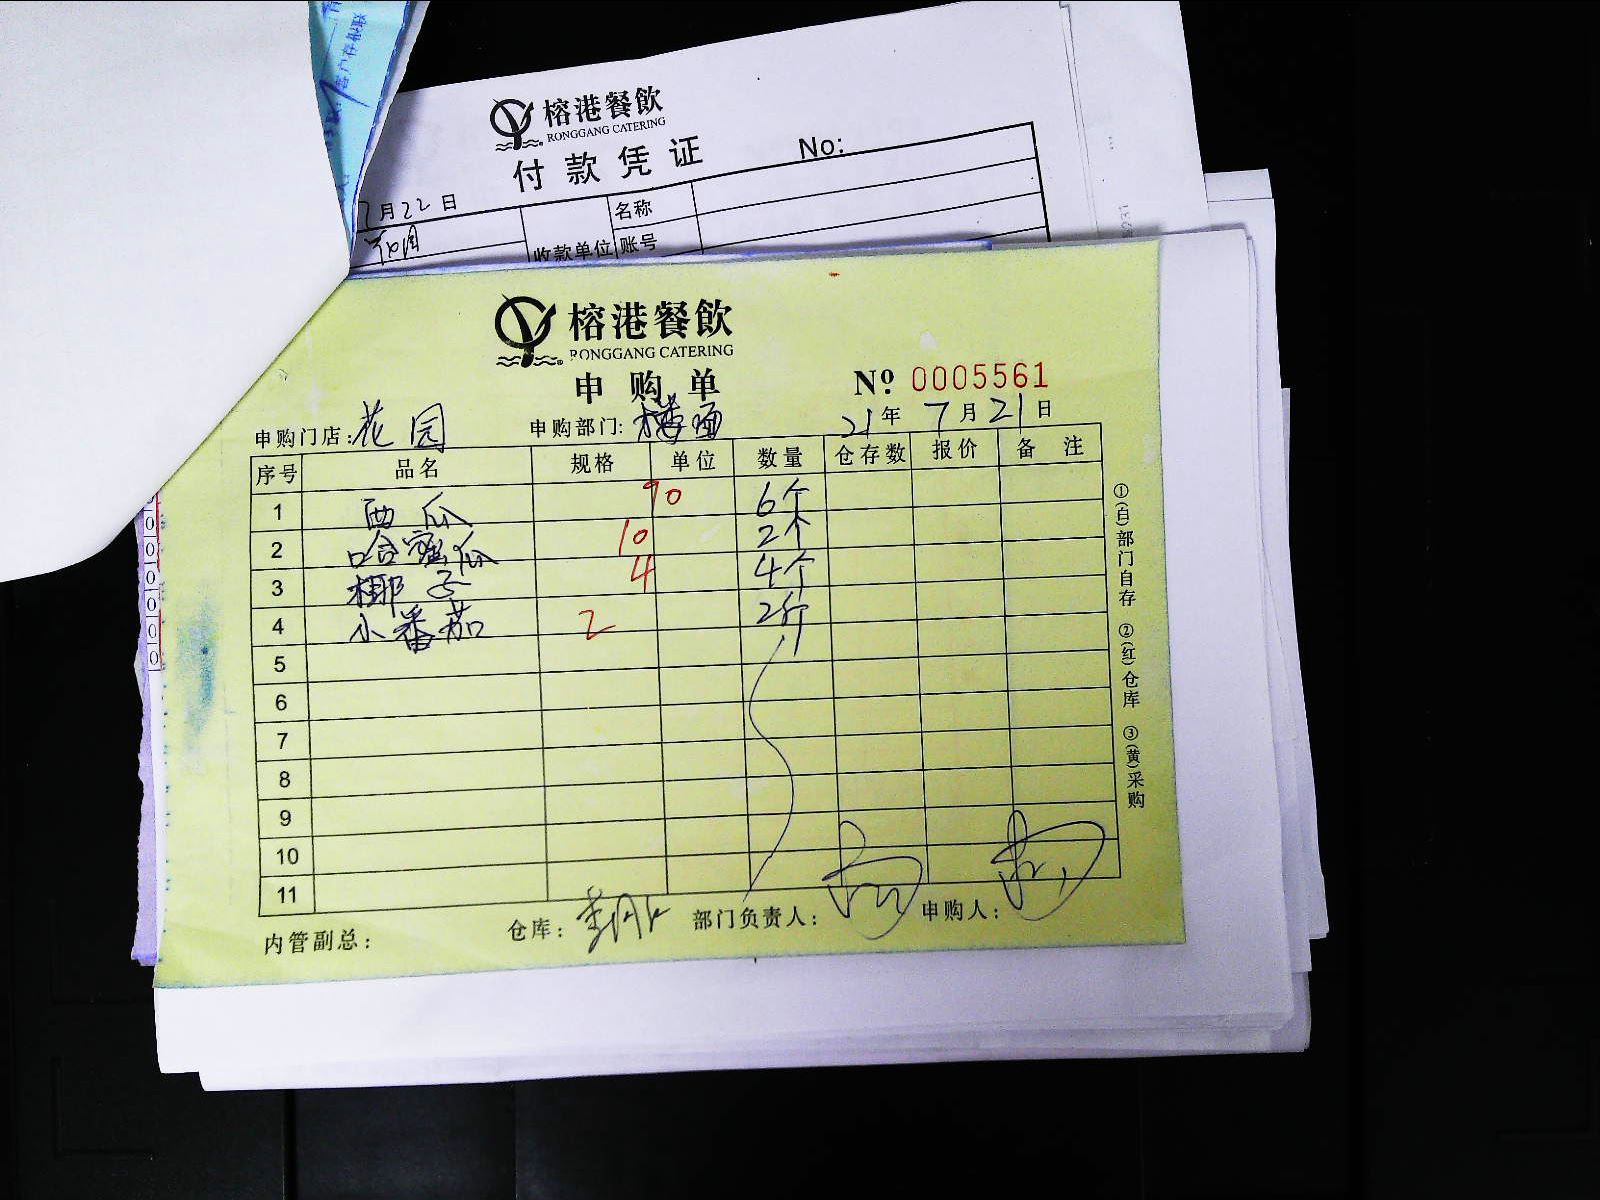 榕港餐飲
RONGGANG CATERING
付款凭证 No:
7月22日
名称
收款单位 账号
榕港餐飲
RONGGANG CATERING
申购单 Nº 0005561
申购门店:花园 申购部门:楼面 21年7月21日
序号 品名 规格 单位 数量 仓存数 报价 备注
1 西瓜 90 6个
2 哈密瓜 10 2个
3 椰子 4 4个
4 小番茄 2 2斤
5
6
7
8
9
10
11
内管副总: 仓库: 部门负责人: 申购人:
①(白)部门自存 ②(红)仓库 ③(黄)采购